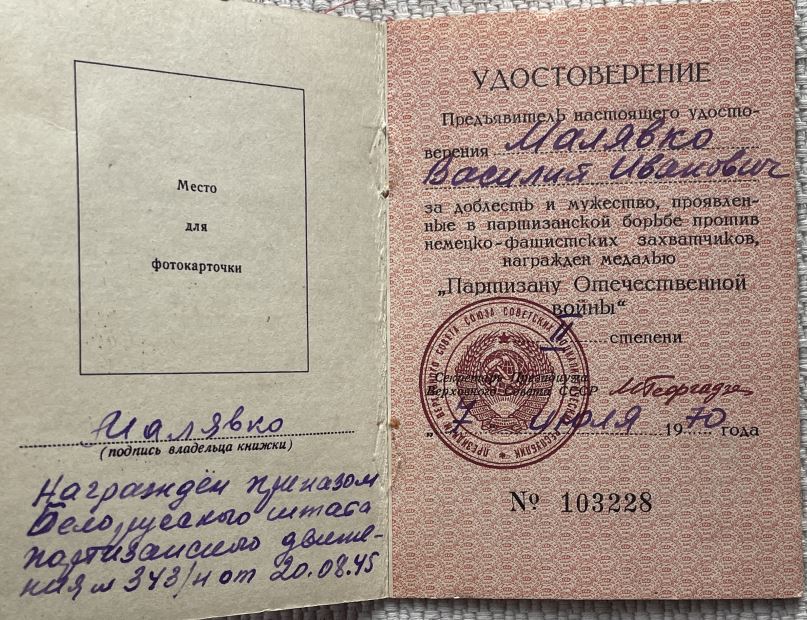 Место
для
фотокарточки
Малявко
(подпись владельца книжки)
Награждён приказом
Белорусского штаба
партизанского движе-
ния № 343/н от 20.08.45
УДОСТОВЕРЕНИЕ
Предъявитель настоящего удосто-
верения Малявко
Василий Иванович
за доблесть и мужество, проявлен-
ные в партизанской борьбе против
немецко-фашистских захватчиков,
награжден медалью
„Партизану Отечественной
войны“
II степени
Секретарь Президиума
Верховного Совета СССР МГеоргадзе
„7 июля 1970 года
№ 103228